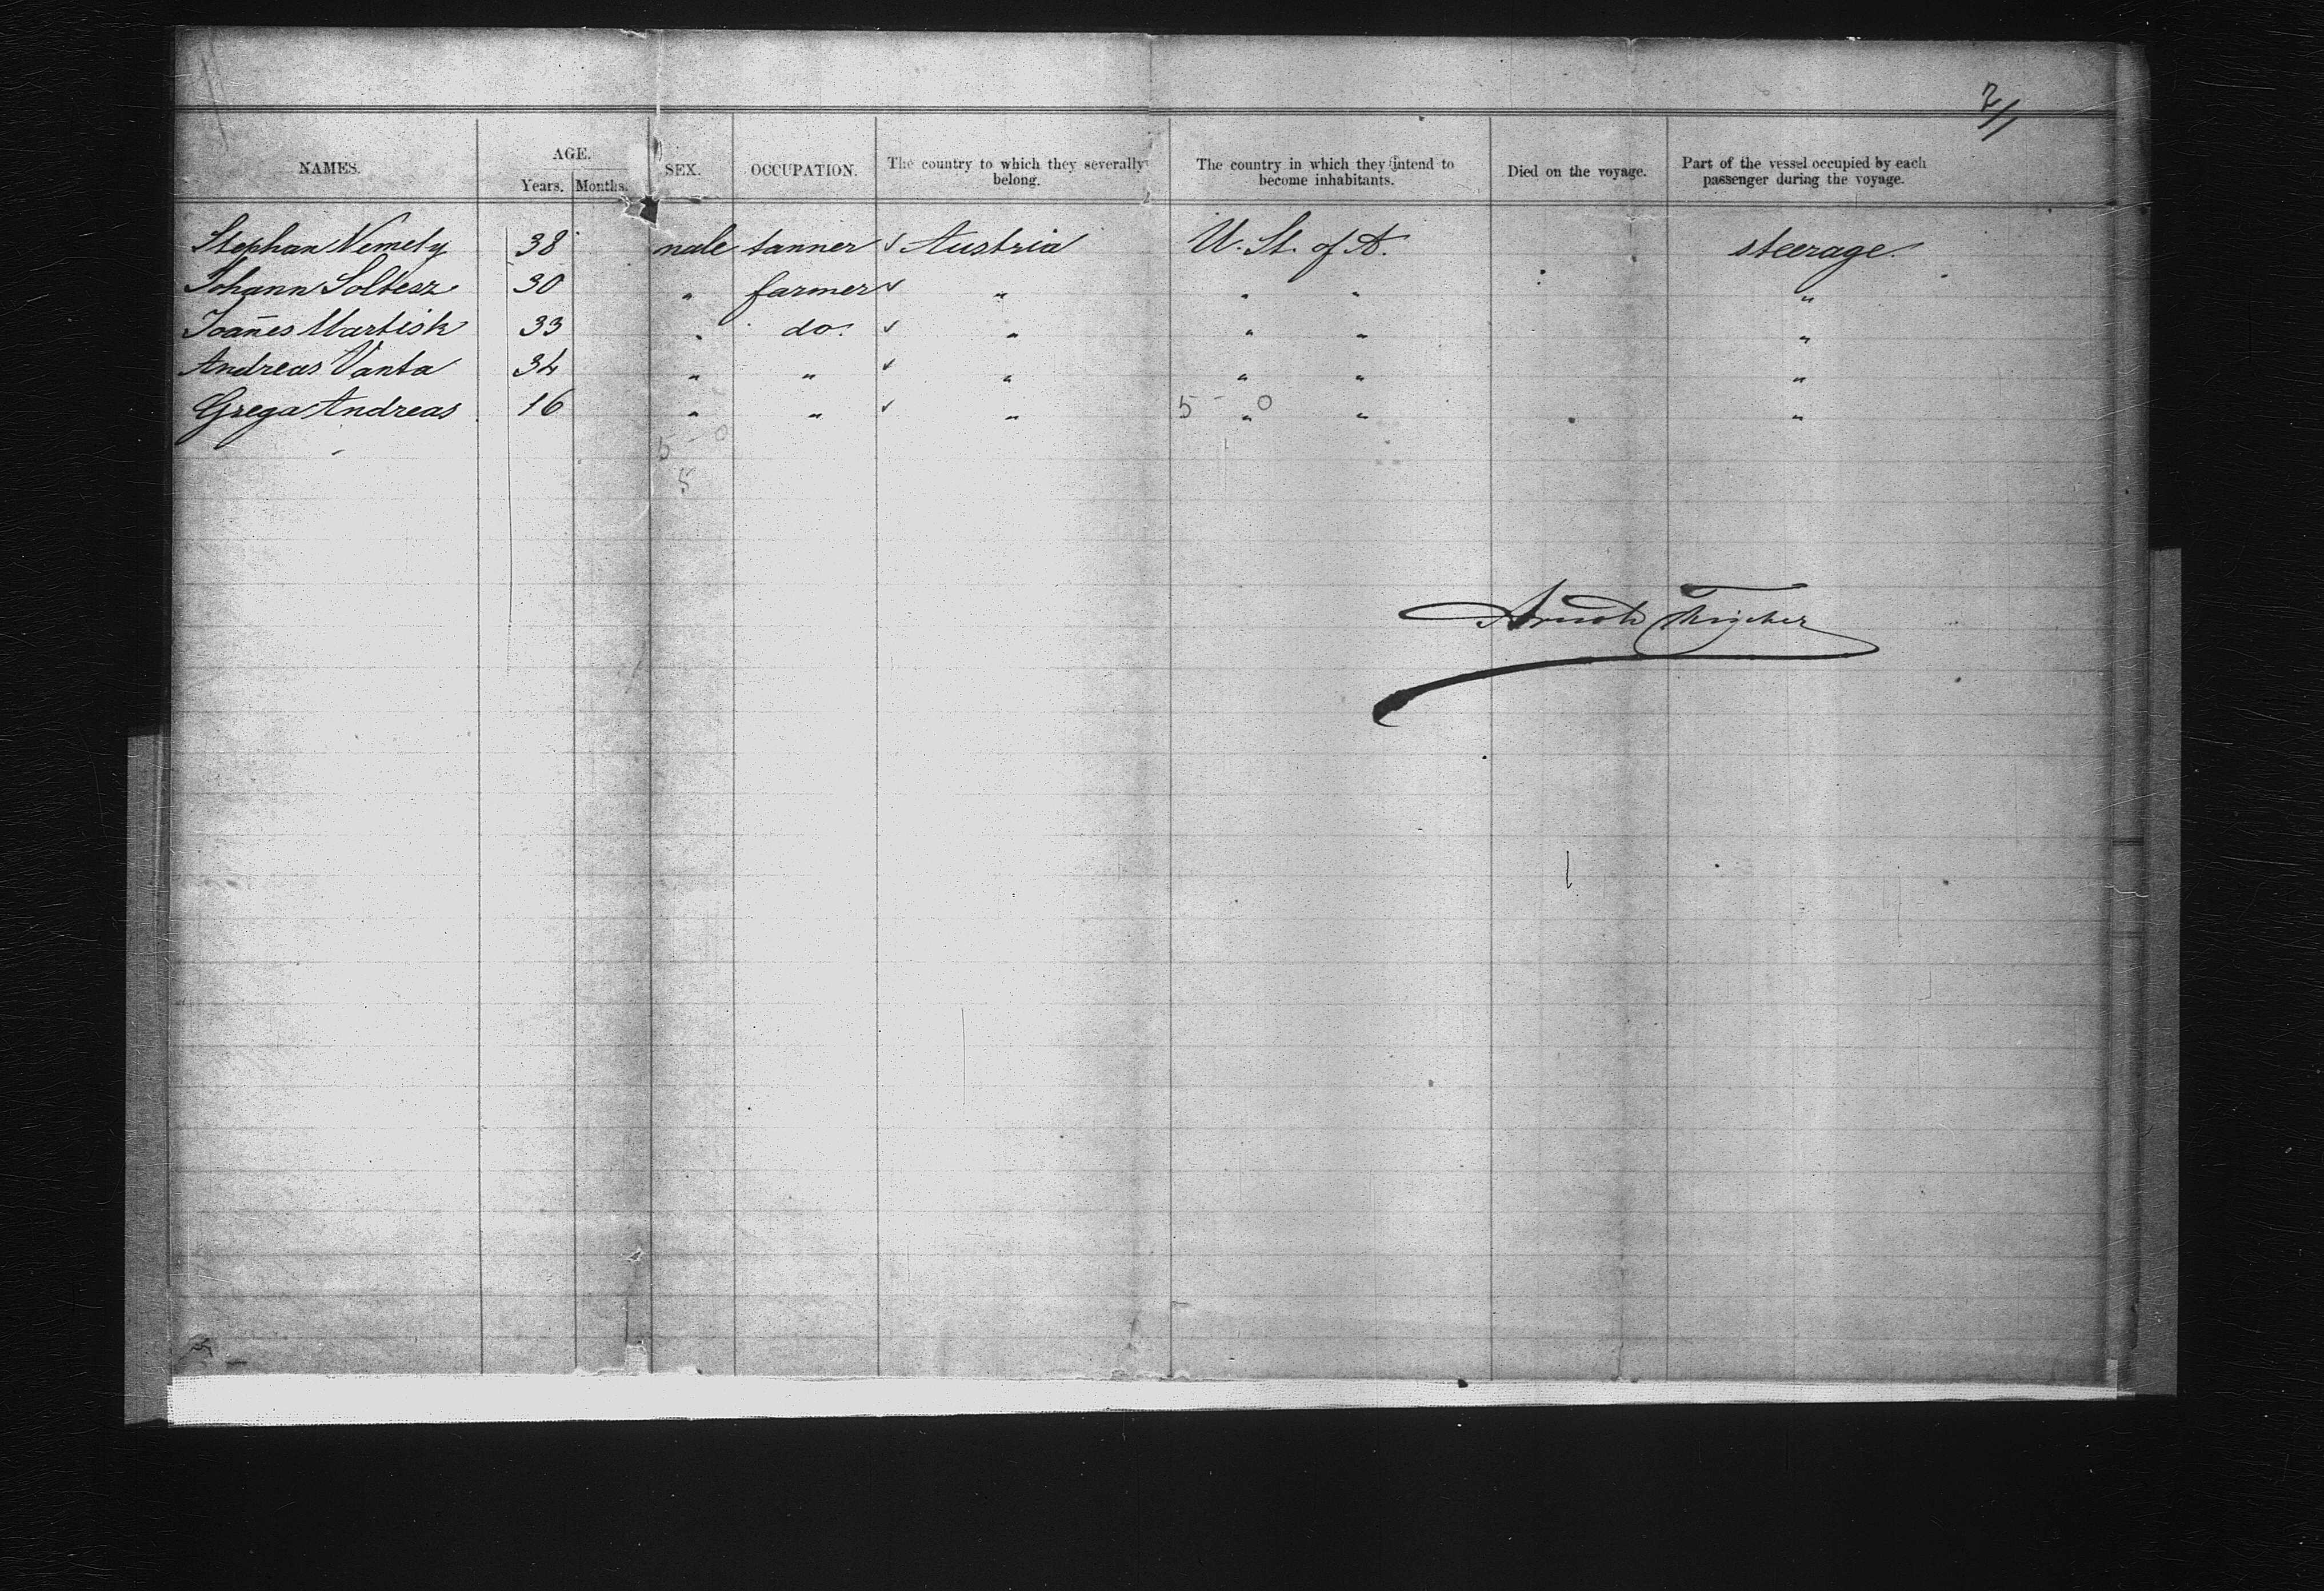 2/1
NAMES. AGE. Years. Months. SEX. OCCUPATION. The country to which they severally belong. The country in which they intend to become inhabitants. Died on the voyage. Part of the vessel occupied by each passenger during the voyage.
Stephan Nemety 38 male tanner ✓ Austria U. St. of A. steerage.
Johann Soltesz 30 " farmer ✓ " " " "
Joan̄es Martisk 33 " do. ✓ " " " "
Andreas Vanta 34 " " ✓ " " " "
Grega Andreas 16 " " ✓ " 5 - 0 " " "
5 - 0
5